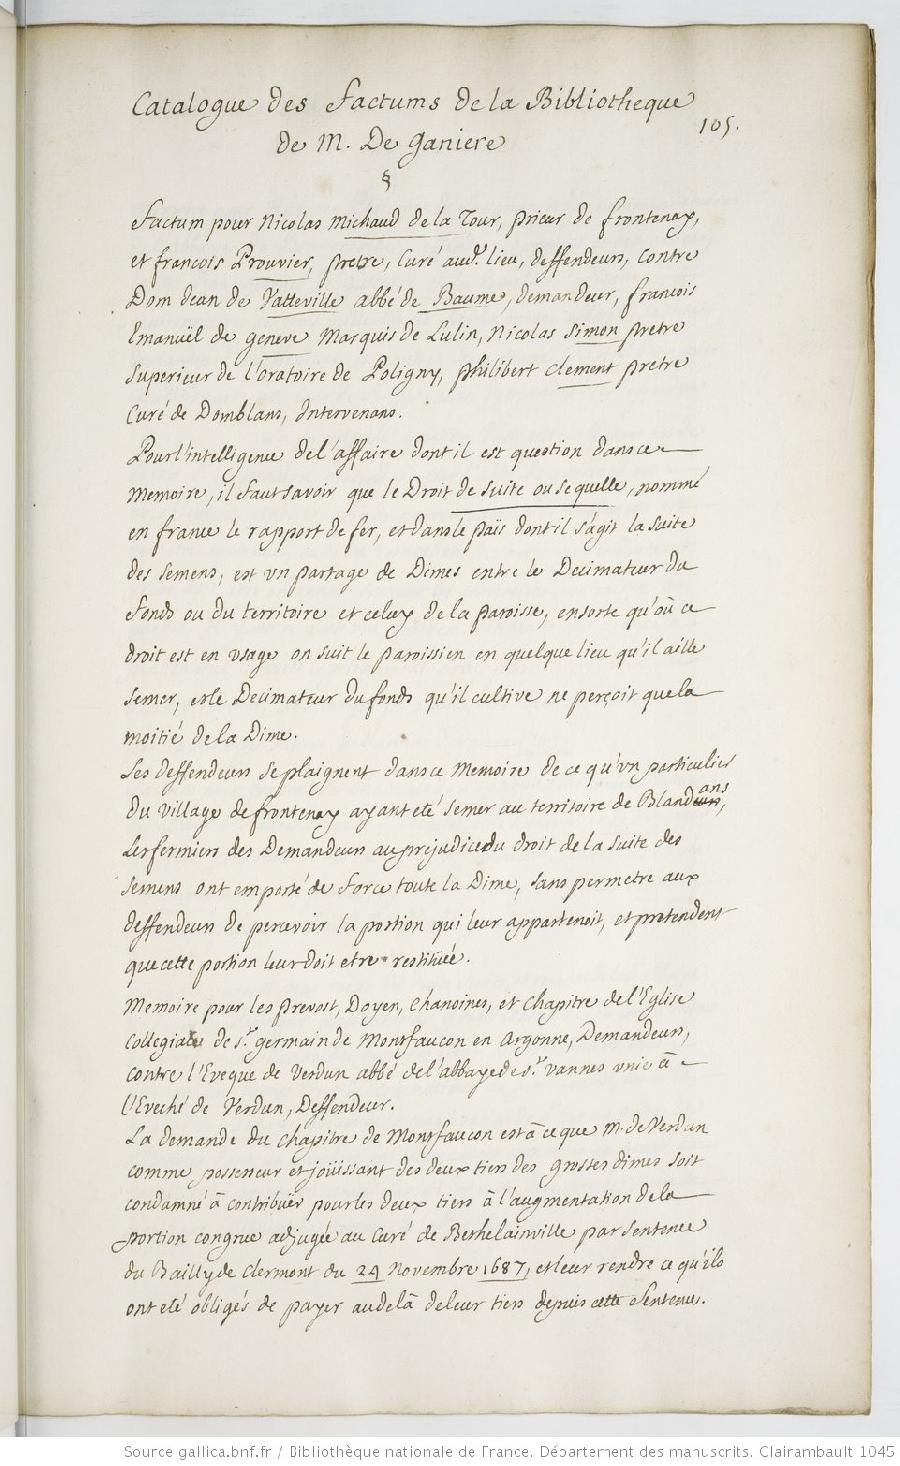 Catalogue des factums de la Bibliotheque
105.
de M. De ganiere
§
factum pour Nicolas Michaud de la Tour, prieur de frontenay,
et francois Prouvier, pretre, Curé aud.t lieu, deffendeurs, contre
Dom Jean de Vatteville abbé de Baume, demandeur, francois
Emanuël de geneve Marquis de Lulin, Nicolas Simon pretre
superieur de l'oratoire de Poligny, philibert clement pretre
Curé de Domblans, Intervenans.
Pour l'intelligence de l'affaire dont il est question dans ce
Memoire, il faut savoir que le Droit de suite ou sequelle, nommé
en france le rapport de fer, et dans le païs dont il s'agit la suite
des semens, est un partage de Dimes entre le Decimateur du
fonds ou du territoire et celuy de la paroisse, en sorte qu'où ce
droit est en usage on suit le paroissien en quelque lieu qu'il aille
semer, et le Decimateur du fonds qu'il cultive ne perçoit que la
moitié de la Dime.
Les deffendeurs se plaignent dans ce Memoire de ce qu'un particulier
du village de frontenay ayant été semer au territoire de Blandans,
Les fermiers des Demandeurs au prejudice du droit de la suite des
semens ont emporté de force toute la Dime, sans permetre aux
deffendeurs de percevoir la portion qui leur appartenoit, et pretendent
que cette portion leur doit etre restituée.
Memoire pour les Prevost, Doyen, Chanoines, et Chapitre de l'Eglise
Collegiale de s.t germain de Montfaucon en Argonne, Demandeurs,
contre l'Eveque de Verdun abbé de l'abbaye de s.t vannes unie à
l'Eveché de Verdun, Deffendeur.
La demande du chapitre de Montfaucon est à ce que M. de Verdun
comme possesseur et joüissant des deux tiers des grosses dimes soit
condamné à contribuër pour les deux tiers à l'augmentation de la
portion congrue adjugée au Curé de Bethelainville par sentence
du Bailly de Clermont du 24 Novembre 1687, et leur rendre ce qu'ils
ont été obligés de payer au delà de leur tiers depuis cette sentence.
Source gallica.bnf.fr / Bibliothèque nationale de France. Département des manuscrits. Clairambault 1045